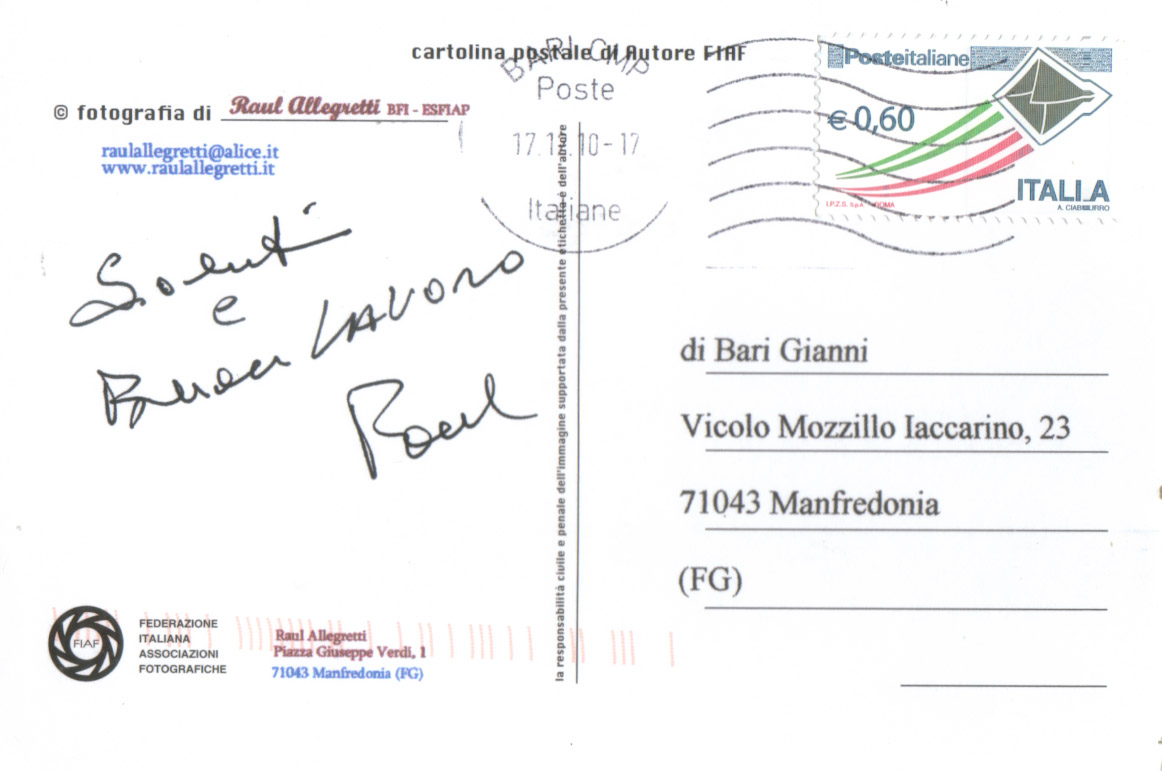 cartolina postale di Autore FIAF
© fotografia di Raul Allegretti BFI - ESFIAP
raulallegretti@alice.it
www.raulallegretti.it
BARI CMP
Poste
10-17
Italiane
Posteitaliane
€ 0,60
ITALIA
I.P.Z.S. S.p.A. ROMA
A. CIABURRO
Saluti
e
Buon LAVORO
Raul
la responsabilità civile e penale dell'immagine supportata dalla presente etichetta è dell'autore
di Bari Gianni
Vicolo Mozzillo Iaccarino, 23
71043 Manfredonia
(FG)
FIAF
FEDERAZIONE
ITALIANA
ASSOCIAZIONI
FOTOGRAFICHE
Raul Allegretti
Piazza Giuseppe Verdi, 1
71043 Manfredonia (FG)